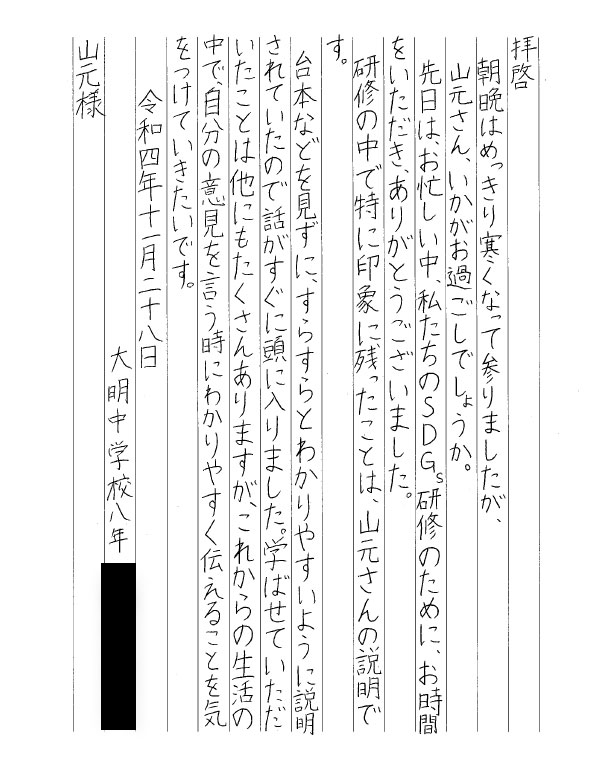 拝啓
朝晩はめっきり寒くなって参りましたが、
山元さん、いかがお過ごしでしょうか。
先日は、お忙しい中、私たちのSDGs研修のために、お時間
をいただき、ありがとうございました。
研修の中で特に印象に残ったことは、山元さんの説明で
す。
台本などを見ずに、すらすらとわかりやすいように説明
されていたので話がすぐに頭に入りました。学ばせていただ
いたことは他にもたくさんありますが、これからの生活の
中で、自分の意見を言う時にわかりやすく伝えることを気
をつけていきたいです。
令和四年十一月二十八日
大明中学校八年
山元様